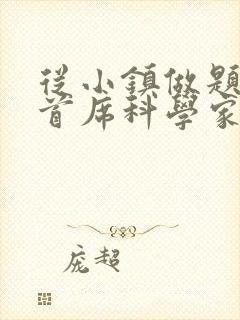 從小鎮做題
首席科學家
庞超